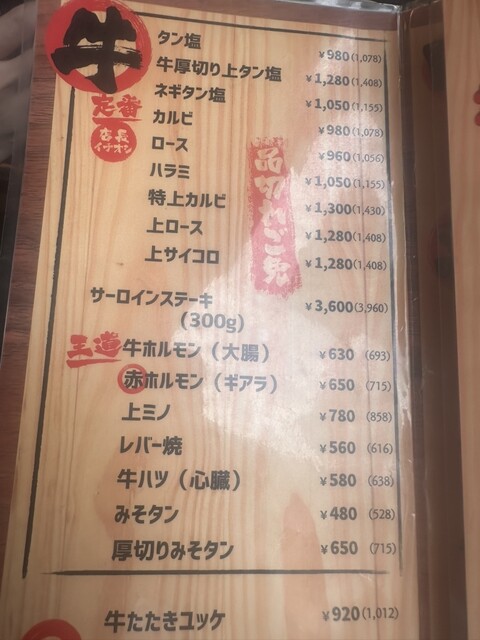 牛
定番
店長
イチオシ
タン塩 ¥980(1,078)
牛厚切り上タン塩 ¥1,280(1,408)
ネギタン塩 ¥1,050(1,155)
カルビ ¥980(1,078)
ロース ¥960(1,056)
ハラミ ¥1,050(1,155)
特上カルビ ¥1,300(1,430)
上ロース ¥1,280(1,408)
上サイコロ ¥1,280(1,408)
品切れご免
サーロインステーキ ¥3,600(3,960)
(300g)
王道 牛ホルモン(大腸) ¥630 (693)
赤ホルモン(ギアラ) ¥650 (715)
上ミノ ¥780 (858)
レバー焼 ¥560 (616)
牛ハツ(心臓) ¥580 (638)
みそタン ¥480 (528)
厚切りみそタン ¥650 (715)
牛たたきユッケ ¥920(1,012)